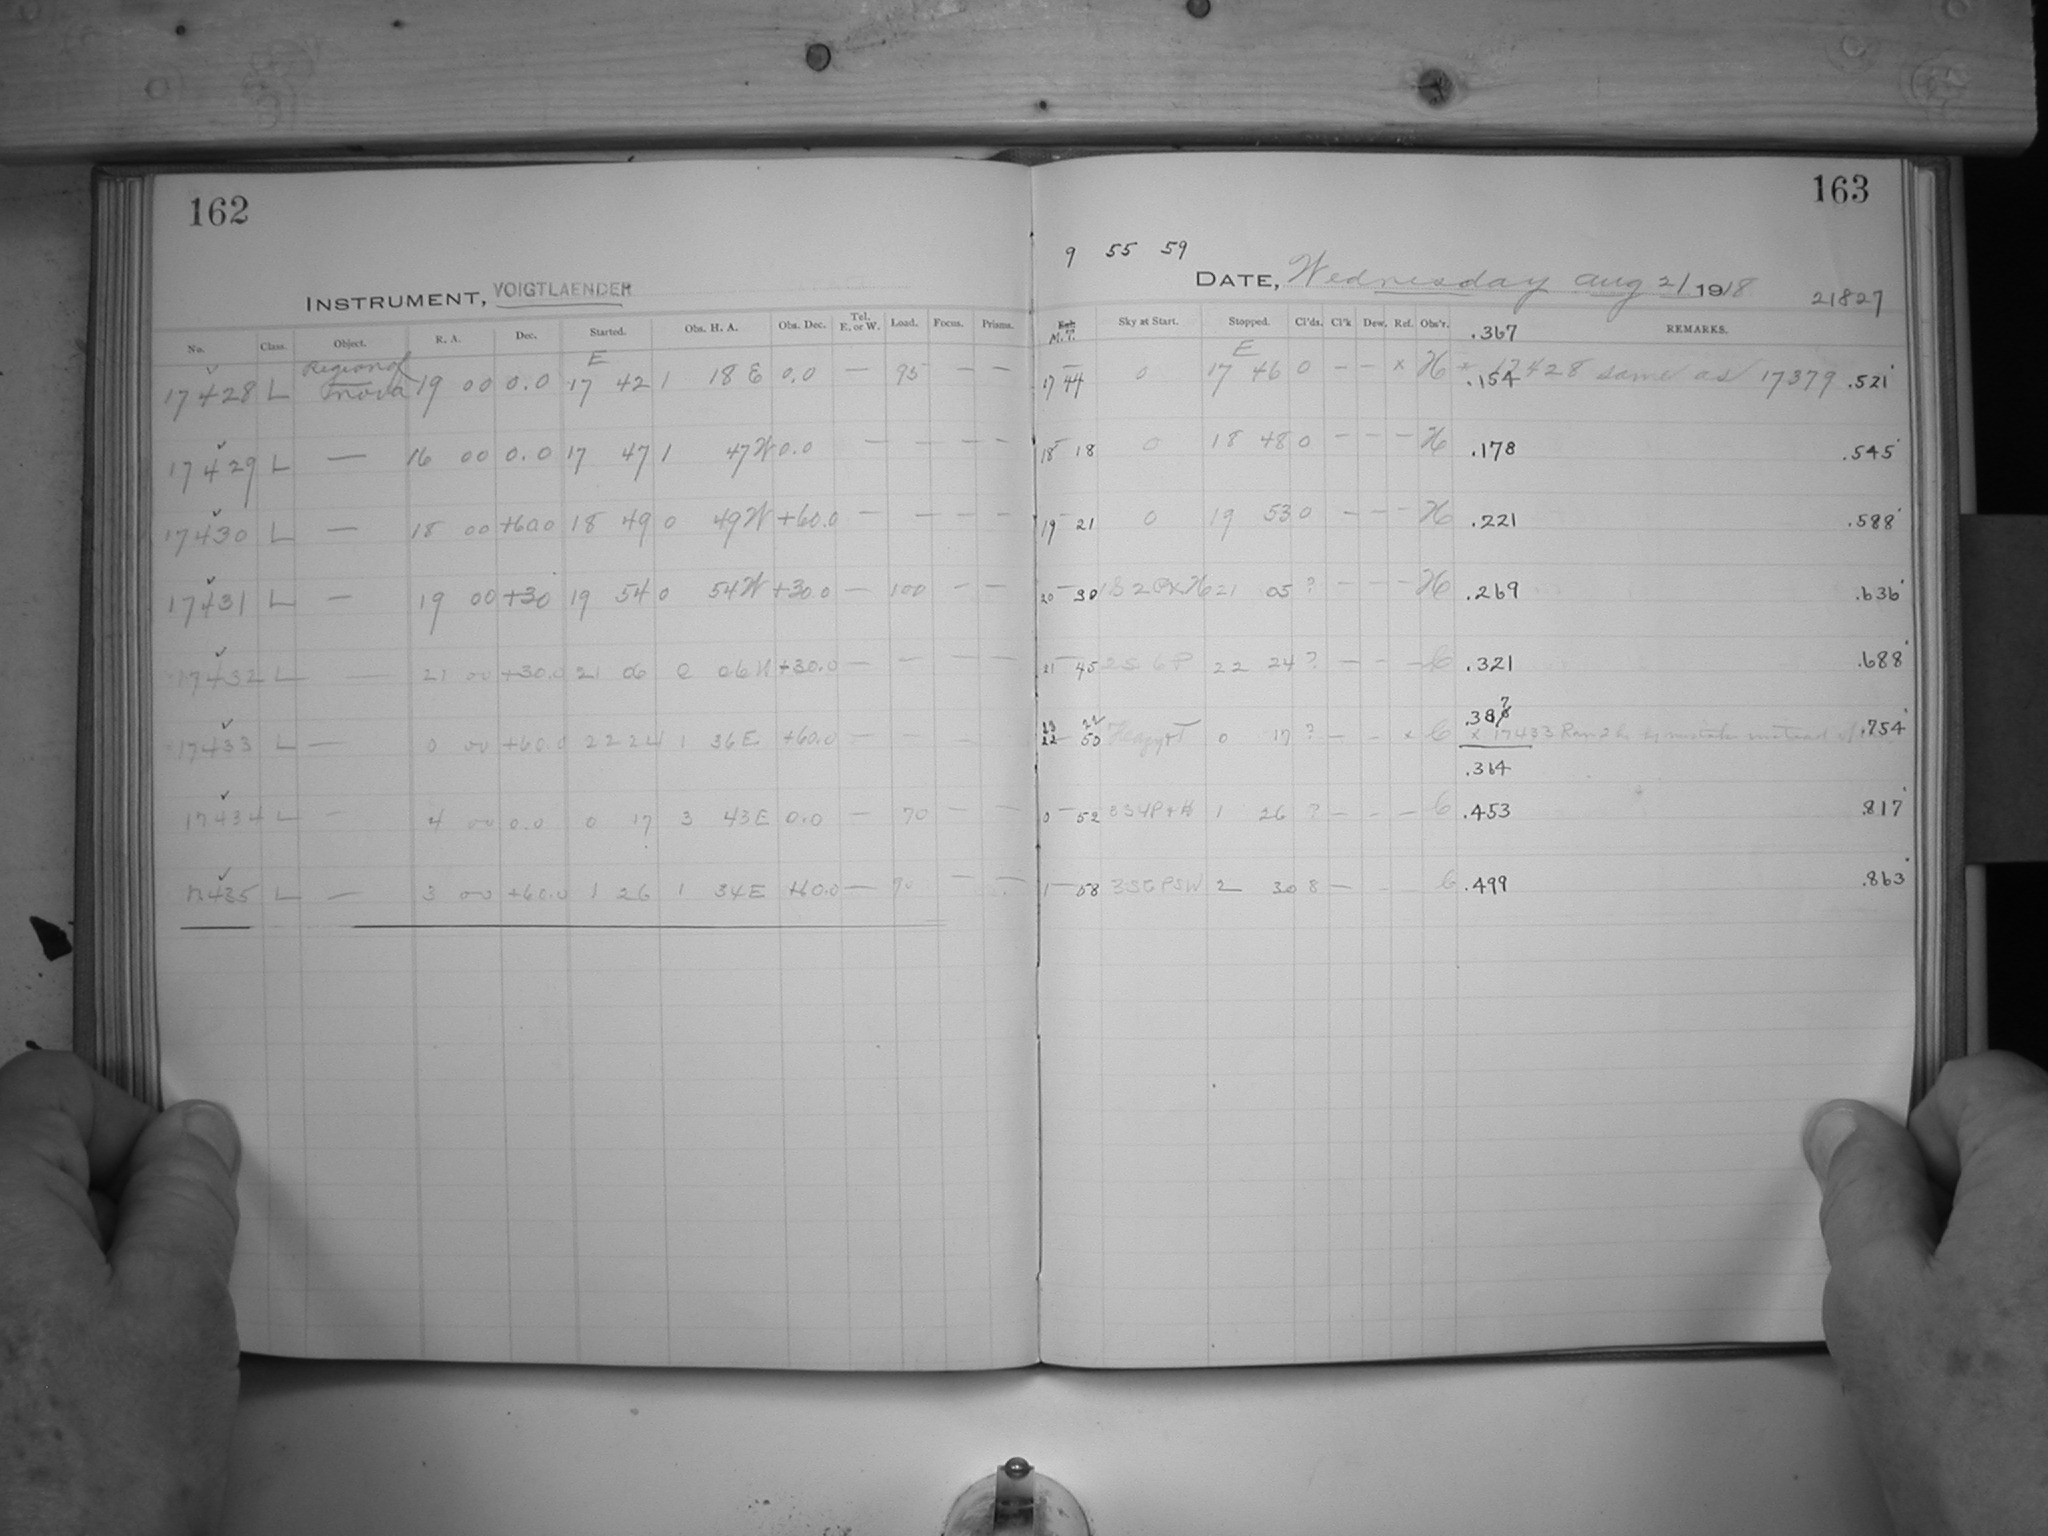 162
INSTRUMENT, VOIGTLAENDER
No. Class. Object. R. A. Dec. Started. Obs. H. A. Obs. Dec. Tel. E. or W. Load. Focus. Prisms.
E
17428 L Region of Nova 19 00 0.0 17 42 1 18 E 0.0 — 95 — —
17429 L — 16 00 0.0 17 47 1 47 W 0.0 — — — —
17430 L — 18 00 +60.0 18 49 0 49 W +60.0 — — — —
17431 L — 19 00 +30 19 54 0 54 W +30.0 — 100 — —
17432 L — 21 00 +30.0 21 06 0 06 W +30.0 — — — —
17433 L — 0 00 +60.0 22 24 1 36 E +60.0 — — — —
17434 L — 4 00 0.0 0 17 3 43 E 0.0 — 70 — —
17435 L — 3 00 +60.0 1 26 1 34 E +60.0 — 70 — —
163
9 55 59
DATE, Wednesday Aug 21 1918 21827
M.T. Sky at Start. Stopped. Cl'ds. Cl'k Dew. Ref. Obs'r. .367 REMARKS.
E
17 44 0 17 46 0 — — x H * 17428 same as 17379 .521
.154
18 18 0 18 48 0 — — — H .178 .545
19 21 0 19 53 0 — — — H .221 .588
20 30 21 05 ? — — — H .269 .636
21 45 2 S 6 P 22 24 ? — — — C .321 .688
23 22
22 50 0 17 ? — — x C .387 x 17433 Ran 2 h by mistake instead of .754
.364
0 52 1 26 ? — — — C .453 .817
1 58 2 30 8 — — C .499 .863